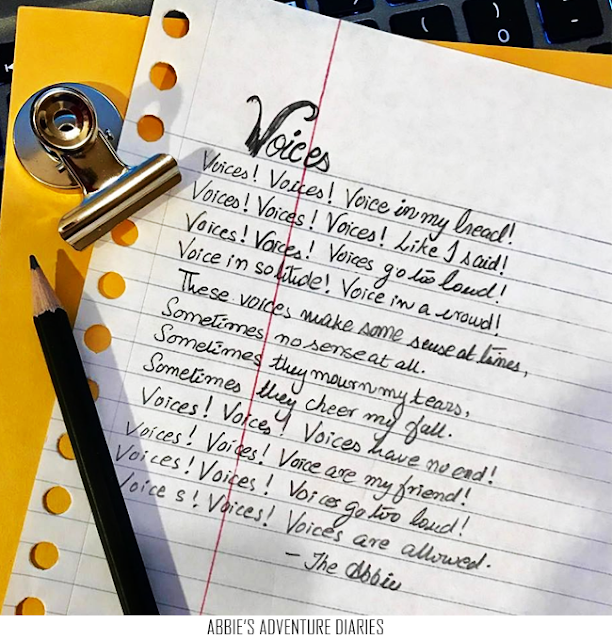 Voices
Voices! Voices! Voice in my head!
Voices! Voices! Voices! Like I said!
Voices! Voices! Voices go too loud!
Voice in solitude! Voice in a crowd!
These voices make some sense at times,
Sometimes no sense at all.
Sometimes they mourn my tears,
Sometimes they cheer my fall.
Voices! Voices! Voices have no end!
Voices! Voices! Voice are my friend!
Voices! Voices! Voices go too loud!
Voices! Voices! Voices are allowed.
- The Abbie
ABBIE'S ADVENTURE DIARIES